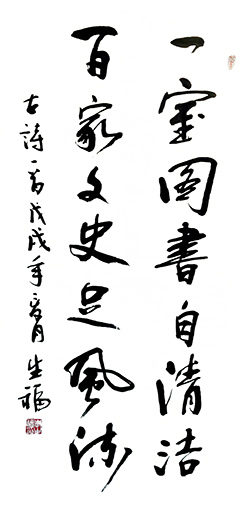 一室图書自清洁
百家文史足風流
古詩一首戊戌年夏月生福